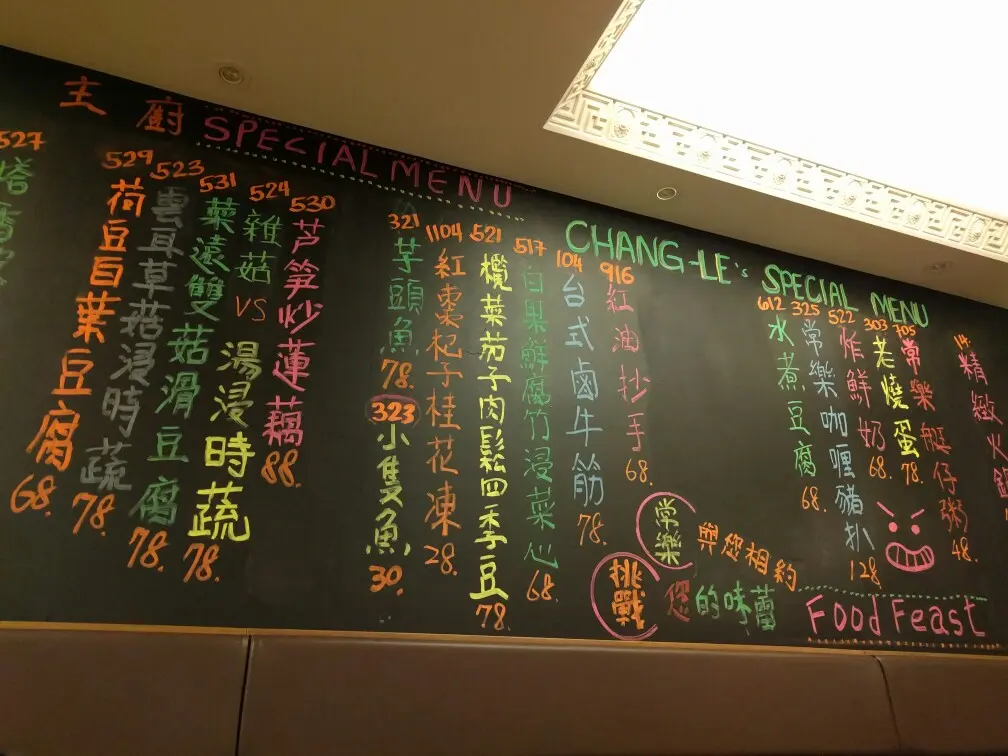 主廚 SPECIAL MENU
527
529 荷豆百葉豆腐 68.
523 雲耳草菇浸時蔬 78.
531 藥遠雙菇滑豆腐 78.
524 雜菇 VS 湯浸時蔬 78.
530 芦笋炒蓮藕 88.
321 芋頭魚 78.
323 小隻魚 30.
1104 紅棗杞子桂花凍 28.
521 欖菜茄子肉鬆四季豆 78.
517 白果鮮腐竹浸菜心 68.
104 台式鹵牛筋 78.
916 紅油抄手 68.
CHANG-LE's SPECIAL MENU
612 水煮豆腐 68.
325 常樂咖喱豬扒 128.
522 炸鮮奶 68.
303 老燒蛋 78.
705 常樂艇仔粥 48.
精緻火
常樂 與您相約
挑戰 您的味蕾
Food Feast